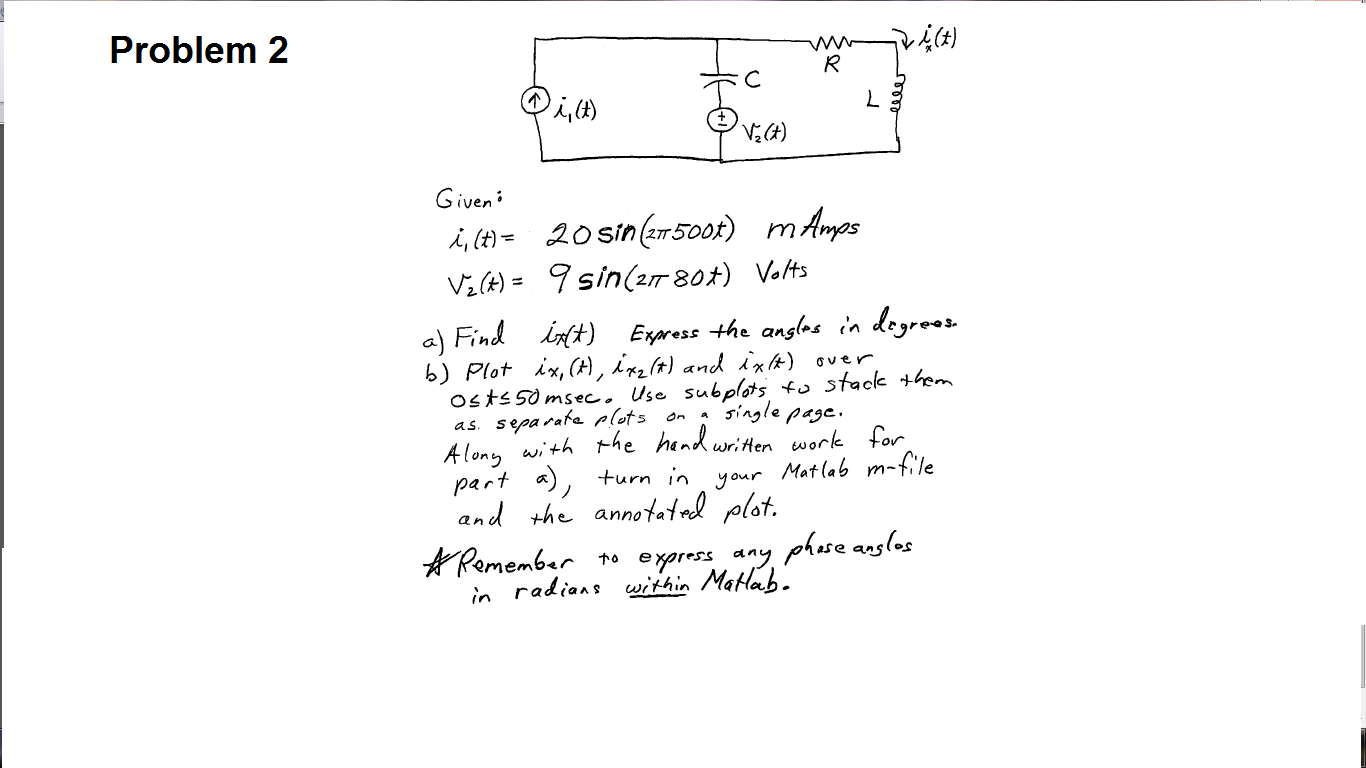 Problem 2
iₓ(t)
R
C
L
i₁(t)
V₂(t)
Given:
i₁(t) = 20 sin(2π500t) mAmps
V₂(t) = 9 sin(2π80t) Volts
a) Find iₓ(t) Express the angles in degrees.
b) Plot iₓ₁(t), iₓ₂(t) and iₓ(t) over
0≤t≤50msec. Use subplots to stack them
as separate plots on a single page.
Along with the hand written work for
part a), turn in your Matlab m-file
and the annotated plot.
* Remember to express any phase angles
in radians within Matlab.